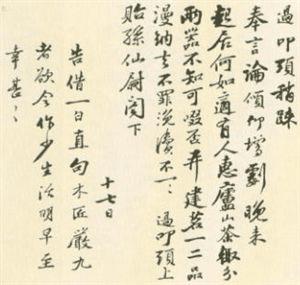 過叩頭稍疎
奉言論傾仰增劇晚来
起居何如適有人惠廬山茶輒分
兩器不知可啜否并建茗一二品
漫納去不罪浼瀆不一一 過叩頭上
貽孫仙尉閤下
十七日
告借一白直句木匠嚴九
者欲令作少生活明早至
幸甚々